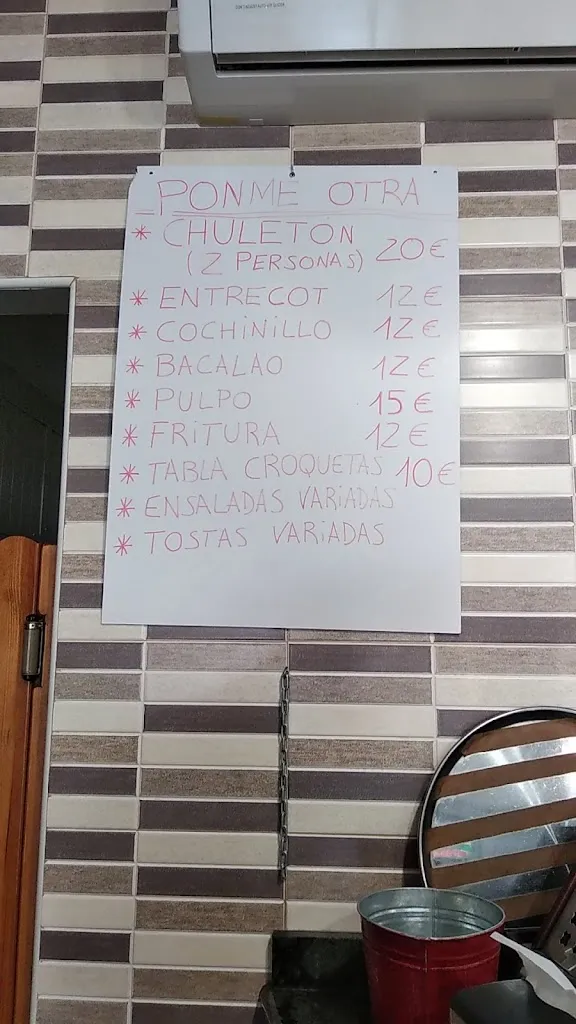 PONME OTRA
* CHULETON
(2 PERSONAS) 20€
* ENTRECOT 12€
* COCHINILLO 12€
* BACALAO 12€
* PULPO 15€
* FRITURA 12€
* TABLA CROQUETAS 10€
* ENSALADAS VARIADAS
* TOSTAS VARIADAS